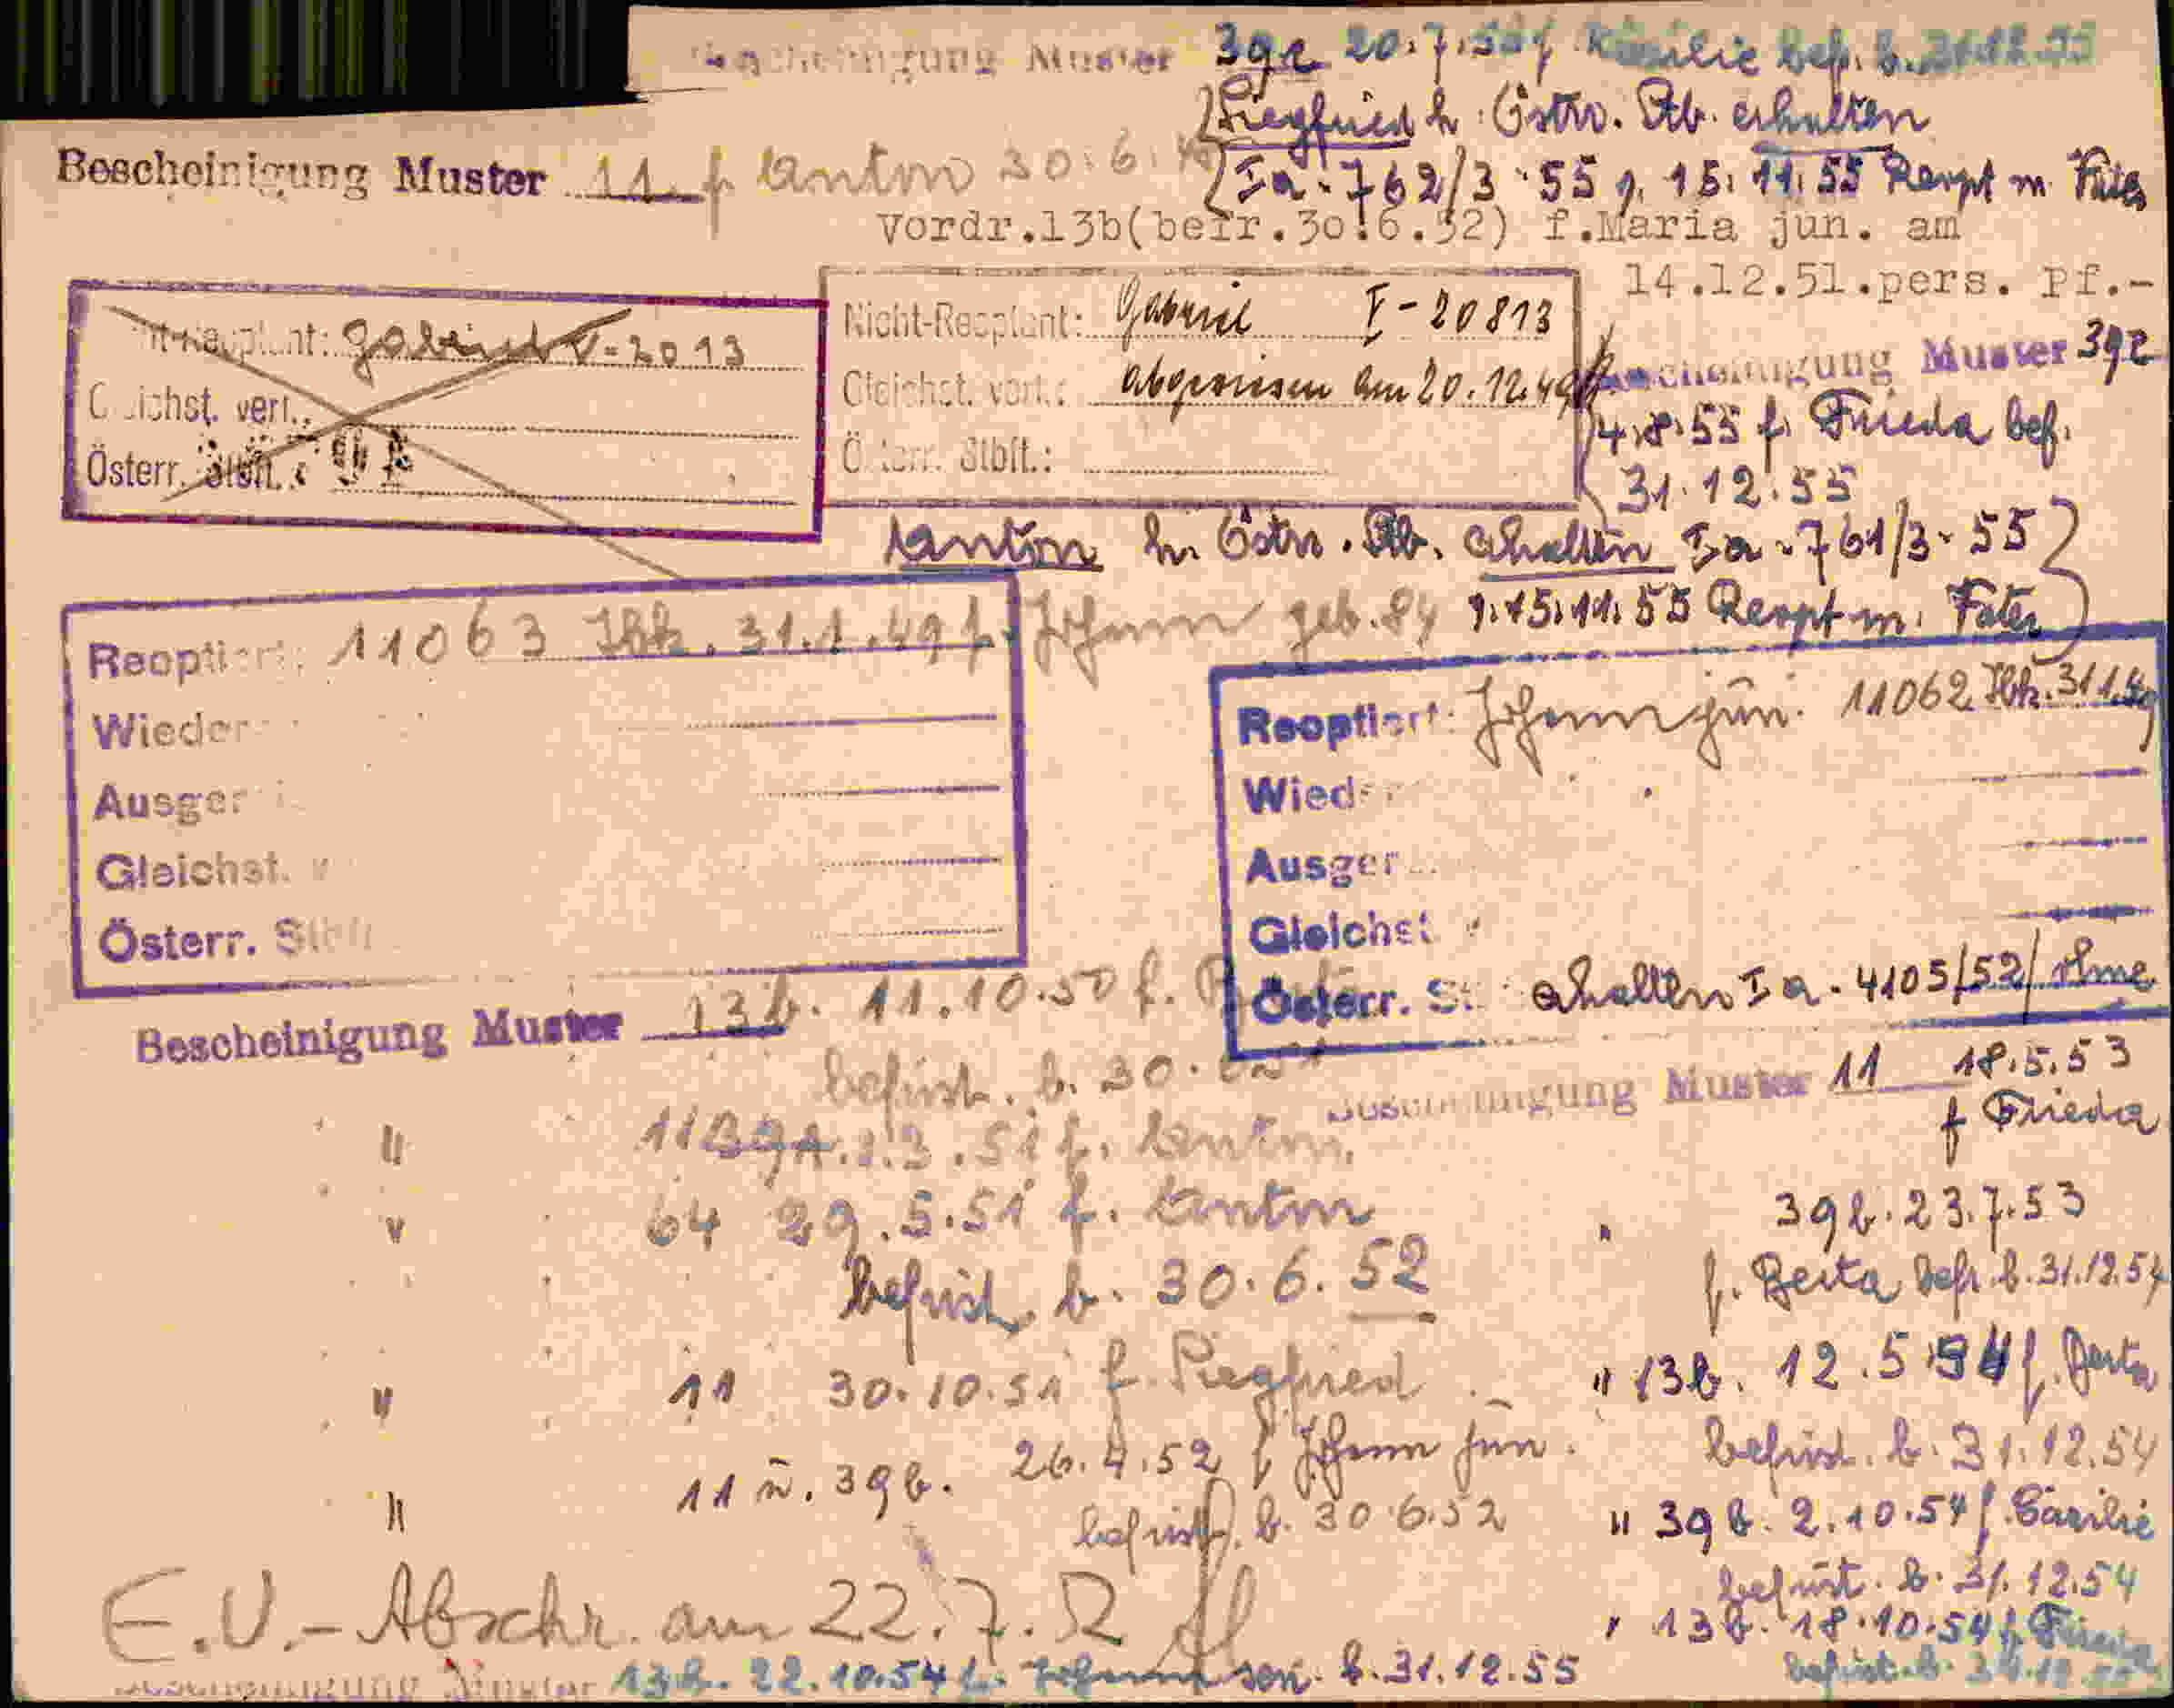 Bescheinigung Muster 39e 20.7.55 f Cäcilie bef. b. 31.12.55
Siegfried h. Östr. Stb. erhalten
Bescheinigung Muster 11. f Anton 30.6.
Ia-762/3-55 v. 15.11.55 Reopt m. Vater
Vordr.13b(befr.30.6.52) f.Maria jun. am
14.12.51.pers. Pf.-
Nicht-Reoptant: Gabriel V-2013
Gleichst. verl.:
Österr. Stbft.:
Nicht-Reoptant: Gabriel I-20813
Gleichst. verl.: abgewiesen am 20.12.49
Österr. Stbft.:
Bescheinigung Muster 39e
4.8.55 f. Frieda bef.
31.12.55
Anton h. Östr. Stb. erhalten Ia-761/3-55
v. 15.11.55 Reopt m. Vater
Reoptiert: 11063 Ibk. 31.1.49 f. Johann geb. 84
Wieder
Ausger
Gleichst. v
Österr. Stbft
Reoptiert: Johann jun. 11062 Ibk. 31.1.49
Wieder
Ausger
Gleichst v
Österr. St erhalten Ia-4105/52/ohne
Bescheinigung Muster 13b. 11.10.50 f.
befrist. b. 30.
Bescheinigung Muster 11 18.5.53
f Frieda
" 11 39A. 1.3.51 f. Anton.
" 64 29.5.51 f. Anton
befrist. b. 30.6.52
" 39b. 23.7.53
f. Berta befr. b. 31.12.54
" 11 30.10.51 f. Siegfried
" 13b. 12.5.54 f. Berta
befrist. b. 31.12.54
" 11 u. 39b. 26.4.52 f Johann jun.
befrist. b. 30.6.52
" 39b. 2.10.54 f. Cäcilie
befrist. b. 31.12.54
E.U.-Abschr. am 22.7.52
" 13b. 18.10.54 f. Frieda
befrist. b. 31.12.55
Bescheinigung Muster 13b. 22.10.54 f. Johann sen. b. 31.12.55